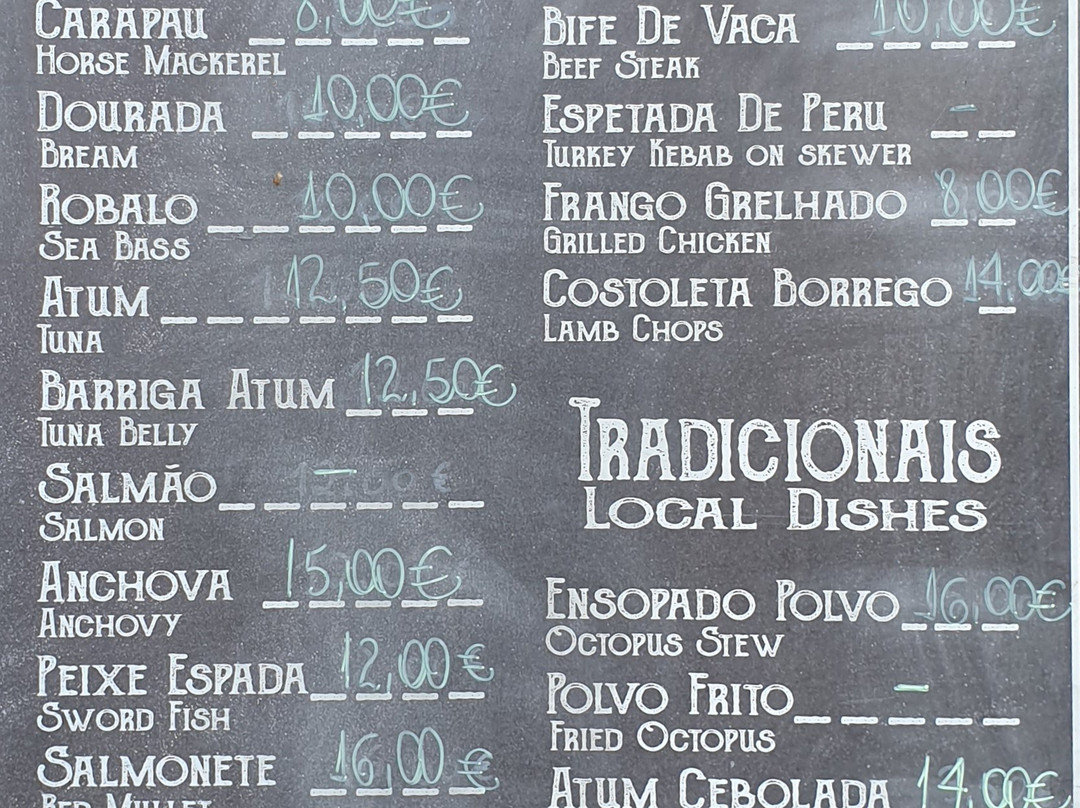 CARAPAU 8,00€
HORSE MACKEREL
DOURADA 10,00€
BREAM
ROBALO 10,00€
SEA BASS
ATUM 12,50€
TUNA
BARRIGA ATUM 12,50€
TUNA BELLY
SALMÃO –
SALMON
ANCHOVA 15,00€
ANCHOVY
PEIXE ESPADA 12,00€
SWORD FISH
SALMONETE 16,00€
RED MULLET
BIFE DE VACA 10,00€
BEEF STEAK
ESPETADA DE PERU –
TURKEY KEBAB ON SKEWER
FRANGO GRELHADO 8,00€
GRILLED CHICKEN
COSTOLETA BORREGO 14,00€
LAMB CHOPS
TRADICIONAIS
LOCAL DISHES
ENSOPADO POLVO 16,00€
OCTOPUS STEW
POLVO FRITO –
FRIED OCTOPUS
ATUM CEBOLADA 14,00€